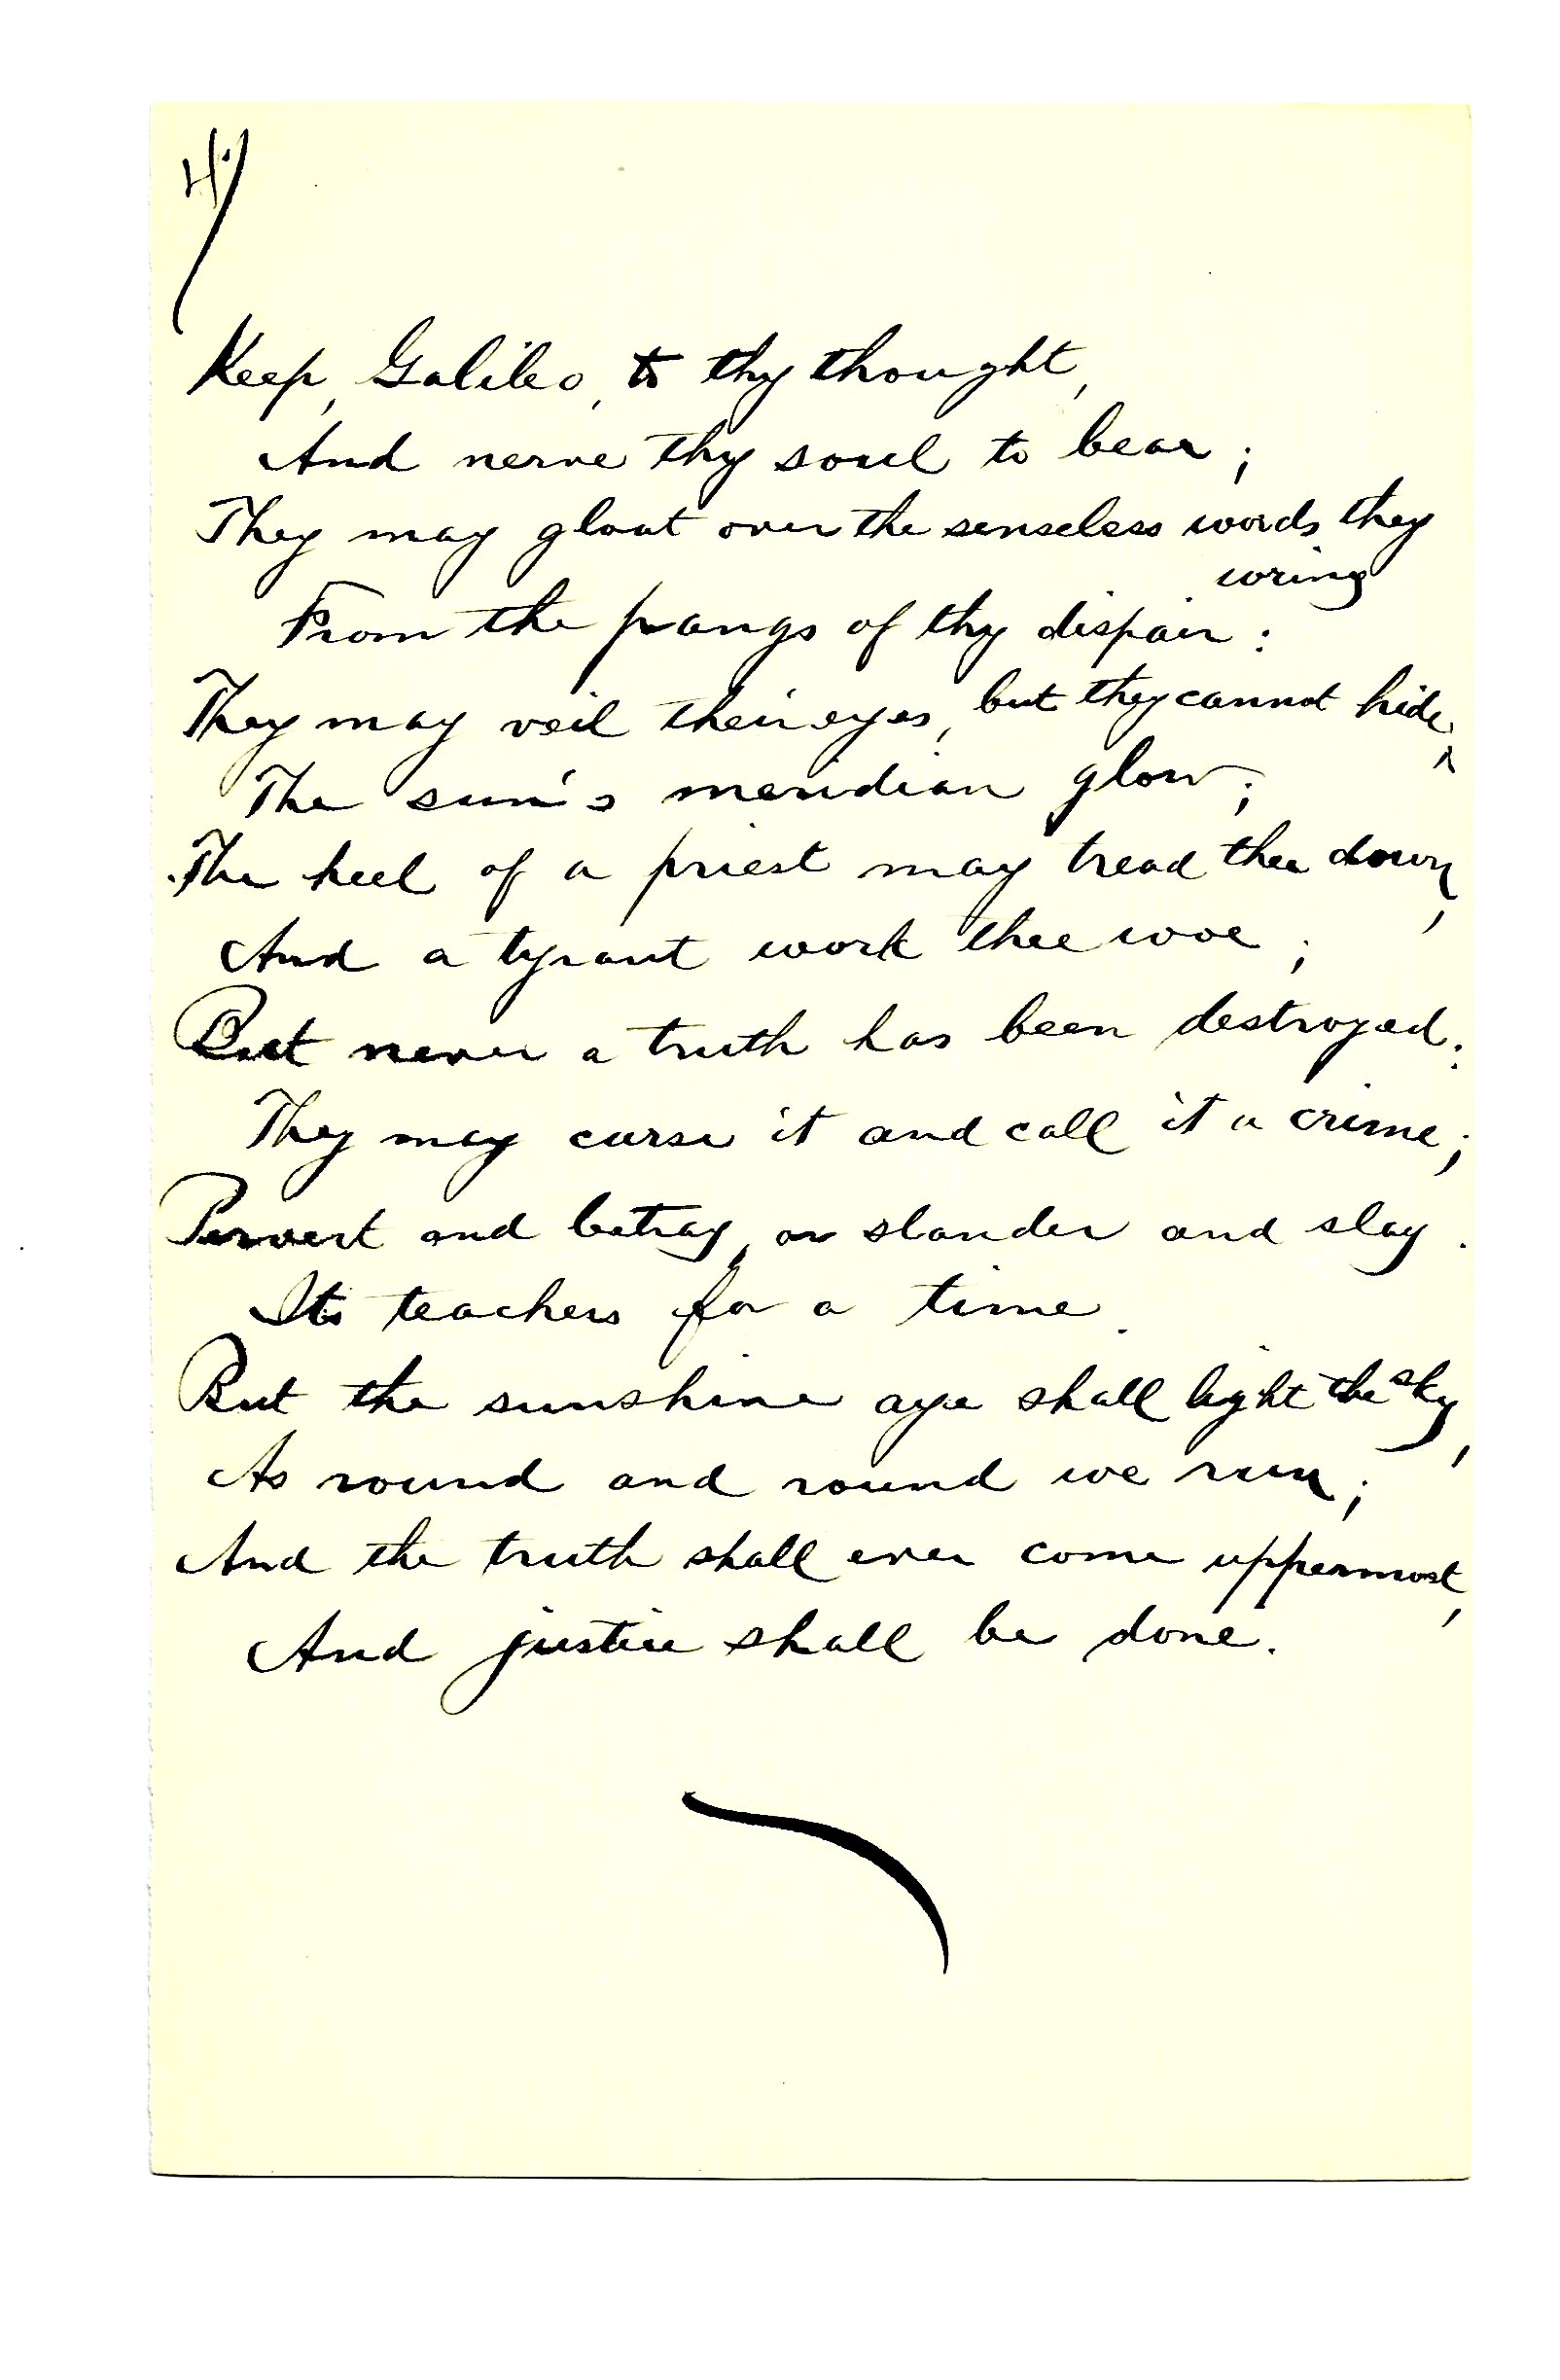 4.)
Keep, Galileo, to thy thought,
And nerve thy soul to bear;
They may gloat over the senseless words they
wring
From the pangs of thy dispair:
They may veil their eyes, but they cannot hide
The sun's meridian glow;
The heel of a priest may tread thee down,
And a tyrant work thee woe;
But never a truth has been destroyed:
They may curse it and call it a crime;
Pervert and betray, or slander and slay.
Its teachers for a time.
But the sunshine aye shall light the sky,
As round and round we run;
And the truth shall ever come uppermost,
And justice shall be done.